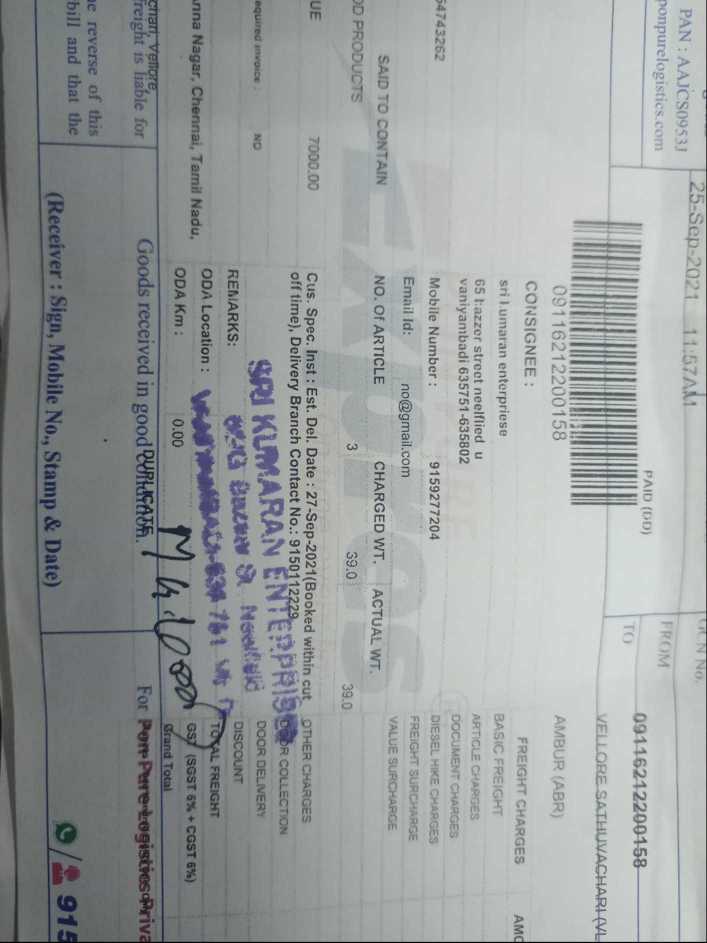 GCN No. 09116212200158
FROM VELLORE SATHUVACHARI (VL
TO AMBUR (ABR)
PAN : AAJCS0953J
ponpurelogistics.com
25-Sep-2021 11:57AM
PAID (DD)
09116212200158
CONSIGNEE :
sri lumaran enterpriese
65 bazzer street neelflied u
vaniyambadi 635751-635802
54743262
Mobile Number : 9159277204
Email Id: no@gmail.com
SAID TO CONTAIN
NO. Of ARTICLE
CHARGED WT.
ACTUAL WT.
OD PRODUCTS
3
39.0
39.0
UE 7000.00
Cus. Spec. Inst : Est. Del. Date : 27-Sep-2021(Booked within cut
off time), Delivery Branch Contact No.: 9150112229
equired invoice : NO
REMARKS:
SRI KUMARAN ENTERPRISES
nna Nagar, Chennai, Tamil Nadu,
ODA Location :
ODA Km : 0.00
FREIGHT CHARGES
BASIC FREIGHT
ARTICLE CHARGES
DOCUMENT CHARGES
DIESEL HIKE CHARGES
FREIGHT SURCHARGE
VALUE SURCHARGE
OTHER CHARGES
DOOR COLLECTION
DOOR DELIVERY
DISCOUNT
TOTAL FREIGHT
GST (SGST 6% + CGST 6%)
Grand Total
chari, Vellore,
freight is liable for
e reverse of this
bill and that the
DUPLICATE
Goods received in good condition.
(Receiver : Sign, Mobile No., Stamp & Date)
For Pon Pure Logistics Priva
915